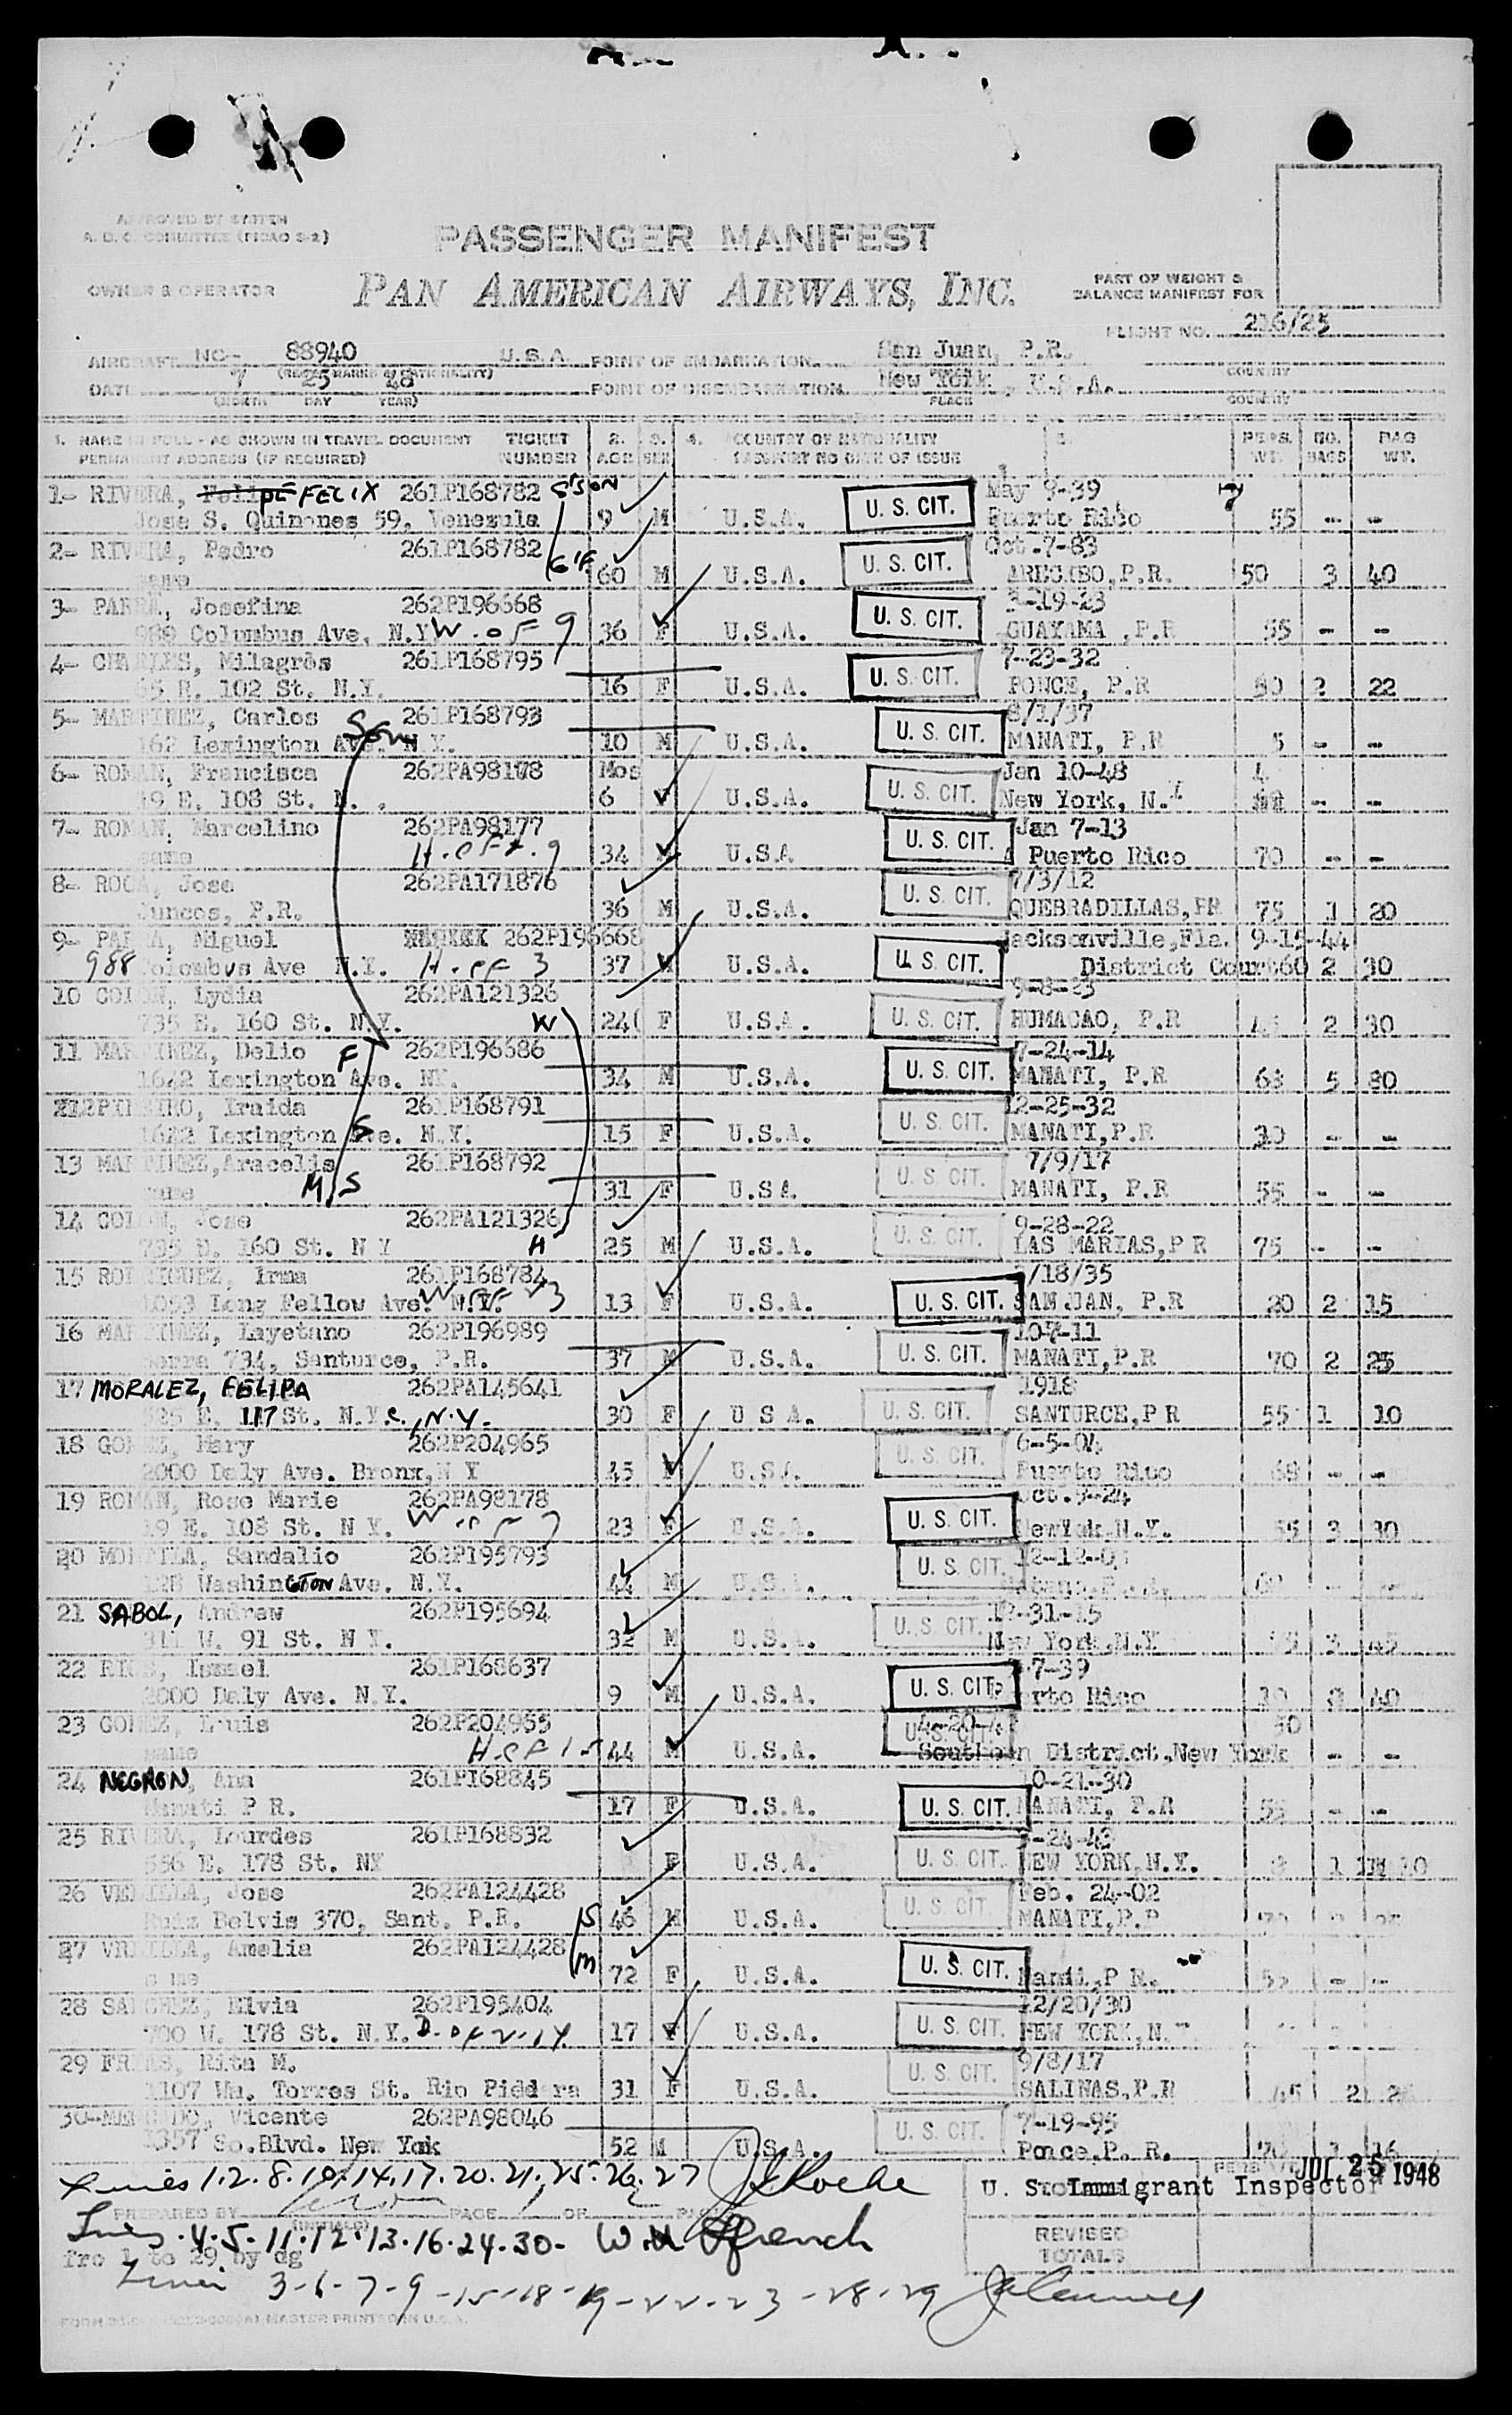 APPROVED BY SYSTEM
A. D. C. COMMITTEE (FICAO S-2)
OWNER & OPERATOR
PASSENGER MANIFEST
PAN AMERICAN AIRWAYS, INC.
PART OF WEIGHT &
BALANCE MANIFEST FOR
FLIGHT NO. 216/25
AIRCRAFT NC- 88940 U.S.A. POINT OF EMBARKATION San Juan, P.R.
COUNTRY
DATE 7 25 48 POINT OF DISEMBARKATION New York, U.S.A.
(MONTH DAY YEAR) PLACE COUNTRY
1. NAME IN FULL - AS SHOWN IN TRAVEL DOCUMENT TICKET 2. 3. 4. COUNTRY OF NATIONALITY PERS. NO. BAG
PERMANENT ADDRESS (IF REQUIRED) NUMBER AGE SEX PASSPORT NO DATE OF ISSUE WT. BAGS WT.
1- RIVERA, Felipe FELIX 261P168782 G'SON May 9-39
Jose S. Quinones 59, Venezula 9 M U.S.A. U. S. CIT. Puerto Rico 55 - -
2- RIVERA, Pedro 261P168782 G'F Oct.-7-83
same 60 M U.S.A. U. S. CIT. ARECIBO, P.R. 50 3 40
3- PARRA, Josefina 262P196668 3-19-23
988 Columbus Ave, N.Y. W. OF 9 36 F U.S.A. U. S. CIT. GUAYAMA, P.R 55 - -
4- CHARLES, Milagros 261P168795 7-23-32
65 E. 102 St. N.Y. 16 F U.S.A. U. S. CIT. PONCE, P.R 50 2 22
5- MARTINEZ, Carlos Son 261P168793 8/1/37
162 Lexington Ave. N.Y. 10 M U.S.A. U. S. CIT. MANATI, P.R 5 - -
6- ROMAN, Francisca 262PA98178 Mos Jan 10-48
19 E. 108 St. N. . 6 U.S.A. U. S. CIT. New York, N.Y - -
7- ROMAN, Marcelino 262PA98177 Jan 7-13
same 34 M U.S.A U. S. CIT. Puerto Rico 70 - -
8- ROCA, Jose 262PA171876 7/3/12
Juncos, P.R. 36 M U.S.A. U. S. CIT. QUEBRADILLAS, PR 75 1 20
9- PARRA, Miguel 262P196668 Jacksonville, Fla. 9-15-44
988 Colombus Ave N.Y. H. OF 3 37 M U.S.A. U. S. CIT. District Court 60 2 30
10 COLON, Lydia 262PA121326 9-8-23
735 E. 160 St. N.Y. W 24 F U.S.A. U. S. CIT. HUMACAO, P.R 45 2 30
11 MARTINEZ, Delio F 262P196686 7-24-14
1642 Lexington Ave. NY. 34 M U.S.A. U. S. CIT. MANATI, P.R 68 5 80
12 PINEIRO, Iraida 261P168791 12-25-32
1642 Lexington Ave. N.Y. S 15 F U.S.A. U. S. CIT. MANATI, P.R - -
13 MARTINEZ, Aracelis 261P168792 7/9/17
same M/S 31 F U.S.A. U. S. CIT. MANATI, P.R 55 - -
14 COLON, Jose 262PA121326 9-28-22
735 E. 160 St. N Y H 25 M U.S.A. U. S. CIT. LAS MARIAS, P R 75 - -
15 RODRIGUEZ, Irma 261P168784 /18/35
1053 Long Fellow Ave. N.Y. 13 F U.S.A. U. S. CIT. SAN JUAN, P.R 20 2 15
16 MARTINEZ, Layetano 262P196989 10-7-11
Serra 734, Santurce, P.R. 37 M U.S.A. U. S. CIT. MANATI, P.R 70 2 25
17 MORALEZ, FELIPA 262PA145641 1918
525 E. 117 St. N.Y.C., N.Y. 30 F U S A. U. S. CIT. SANTURCE, P R 55 1 10
18 GOMEZ, Mary 262P204965 6-5-04
2000 Daly Ave. Bronx, N Y 45 F U.S.A. U. S. CIT. Puerto Rico 68 - -
19 ROMAN, Rose Marie 262PA98178 Oct. 3-24
19 E. 108 St. N Y. W. OF 7 23 F U.S.A. U. S. CIT. New York N.Y. 55 3 30
20 MONTILA, Sandalio 262P195793
128 WashinGTON Ave. N.Y. 44 M U.S.A. U. S. CIT.
21 SABOL, Andrew 262P195694 12-31-15
311 W. 91 St. N Y. 32 M U.S.A. U. S. CIT. New York, N.Y 3 45
22 RIOS, Ismael 261P168637 7-39
2000 Daly Ave. N.Y. 9 M U.S.A. U. S. CIT. Puerto Rico
23 GOMEZ, Louis 262P204965
same 44 M U.S.A. U. S. CIT. Southern District, New York - -
24 NEGRON, Ana 261P168845 10-21-30
Manati P R. 17 F U.S.A. U. S. CIT. MANATI, P.R 55 - -
25 RIVERA, Lourdes 261P168832
556 E. 178 St. NY F U.S.A. U. S. CIT. NEW YORK, N.Y. 1 10
26 VERILLA, Jose 262PA124428 Feb. 24-02
Ruiz Belvis 370, Sant. P.R. S 46 M U.S.A. U. S. CIT. MANATI, P.R
27 VRILLA, Amelia 262PA124428
same M 72 F U.S.A. U. S. CIT. P R. - -
28 SANCHEZ, Elvia 262P195404 12/20/30
700 W. 178 St. N.Y. 17 F U.S.A. U. S. CIT. NEW YORK, N.Y
29 FRIAS, Rita M. 9/8/17
1107 Wm. Torres St. Rio Piedras 31 F U.S.A. U. S. CIT. SALINAS, P.R 45 2
30- MERCADO, Vicente 262PA98046 7-19-95
1357 So. Blvd. New York 52 M U.S.A. U. S. CIT. Ponce, P. R. 70 3 16
Lines 1.2.8.10.14.17.20.21.25.26.27 J Roche
U. S. Immigrant Inspector JUL 25 1948
PREPARED BY (INITIALS) PAGE OF PAGES
Lines .4.5.11.12.13.16.24.30- W. H. French
REVISED
TOTALS
fro 1 to 29 by dg
Lines 3-6-7-9-15-18-19-22-23-28-29
MASTER PRINTED IN U.S.A.